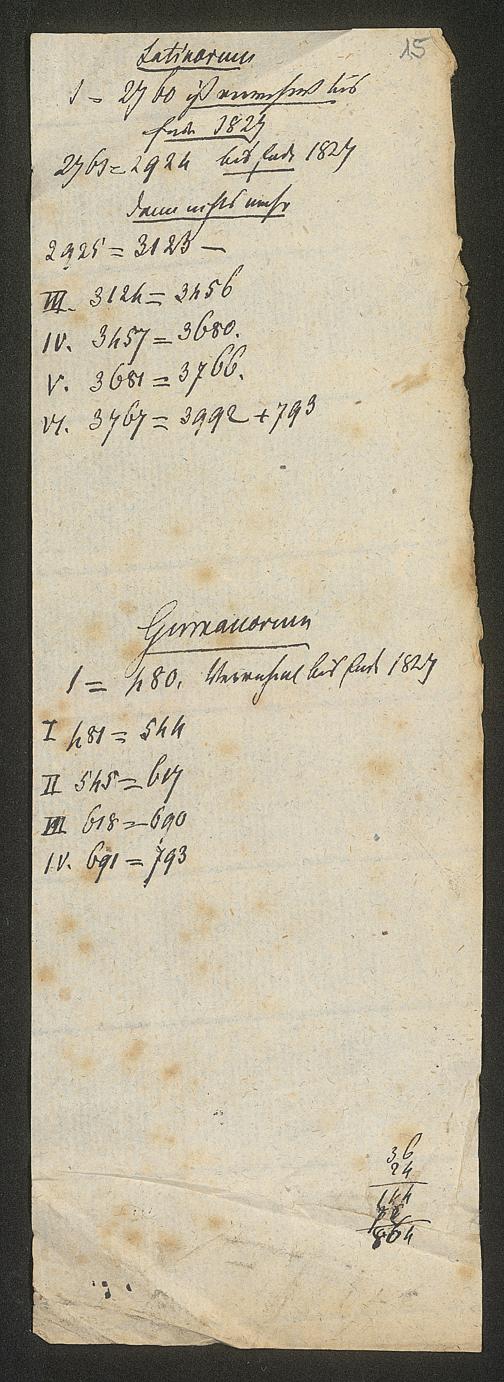 15
Latinorum
1 = 2760 ist vermehrt bis
Ende 1827
2761 = 2924 bis Ende 1827
dann nichts mehr
2925 = 3123 —
III. 3124 = 3456
IV. 3457 = 3680.
V. 3681 = 3766.
VI. 3767 = 3992 + 793
Germanorum
1 = 480. Vermehrt bis Ende 1827
I 481 = 544
II 545 = 617
III 618 = 690
IV. 691 = 793
36
24
144
72
864